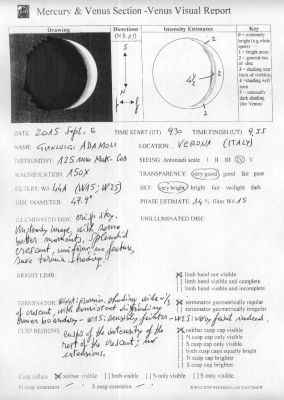 Mercury & Venus Section -Venus Visual Report
Drawing
Directions
(N.S p f)
Intensity Estimates
Key
0 = extremely
bright (e.g. white
spots)
1 = bright areas
2 = general tone
of disc
3 = shading near
limit of visibility
4 = shading well
seen
5 = unusually
dark shading
(for Venus)
S
N
2
2
DATE: 2015 Sept. 6 TIME START (UT) 930 TIME FINISH (UT) 9,55
NAME: GIANLUIGI ADAMOLI LOCATION: VERONA (ITALY)
INSTRUMENT: 125 mm Mak-Cas SEEING: Antoniadi scale I II III IV V
MAGNIFICATION: 150X TRANSPARENCY: very good good fair poor
FILTERS: W# 44A (W15; W25) SKY: very bright bright fair twilight dark
DISC DIAMETER 47.9" PHASE ESTIMATE: 14 % filter W# 15
ILLUMINATED DISC: crisp sky. UNILLUMINATED DISC:
Unsteady image, with some
better moments, splendid
crescent, uniform, no feature,
save termin. shading.
BRIGHT LIMB:
limb band not visible
[ ] limb band visible and complete
[ ] limb band visible and incomplete
TERMINATOR:
terminator geometrically regular
[ ] terminator geometrically irregular
of crescent, with
W15: sensibly fainter - W25: very faint indeed.
CUSP REGIONS: cusps of the intensity of the
rest of the crescent; no
extensions.
neither cusp cap visible
[ ] N cusp cap only visible
[ ] S cusp cap only visible
[ ] both cusp caps equally bright
[ ] N cusp cap brighter
[ ] S cusp cap brighter
Cusp collars neither visible [ ] both visible [ ] N only visible [ ] S only visible.
N cusp extension S cusp extension